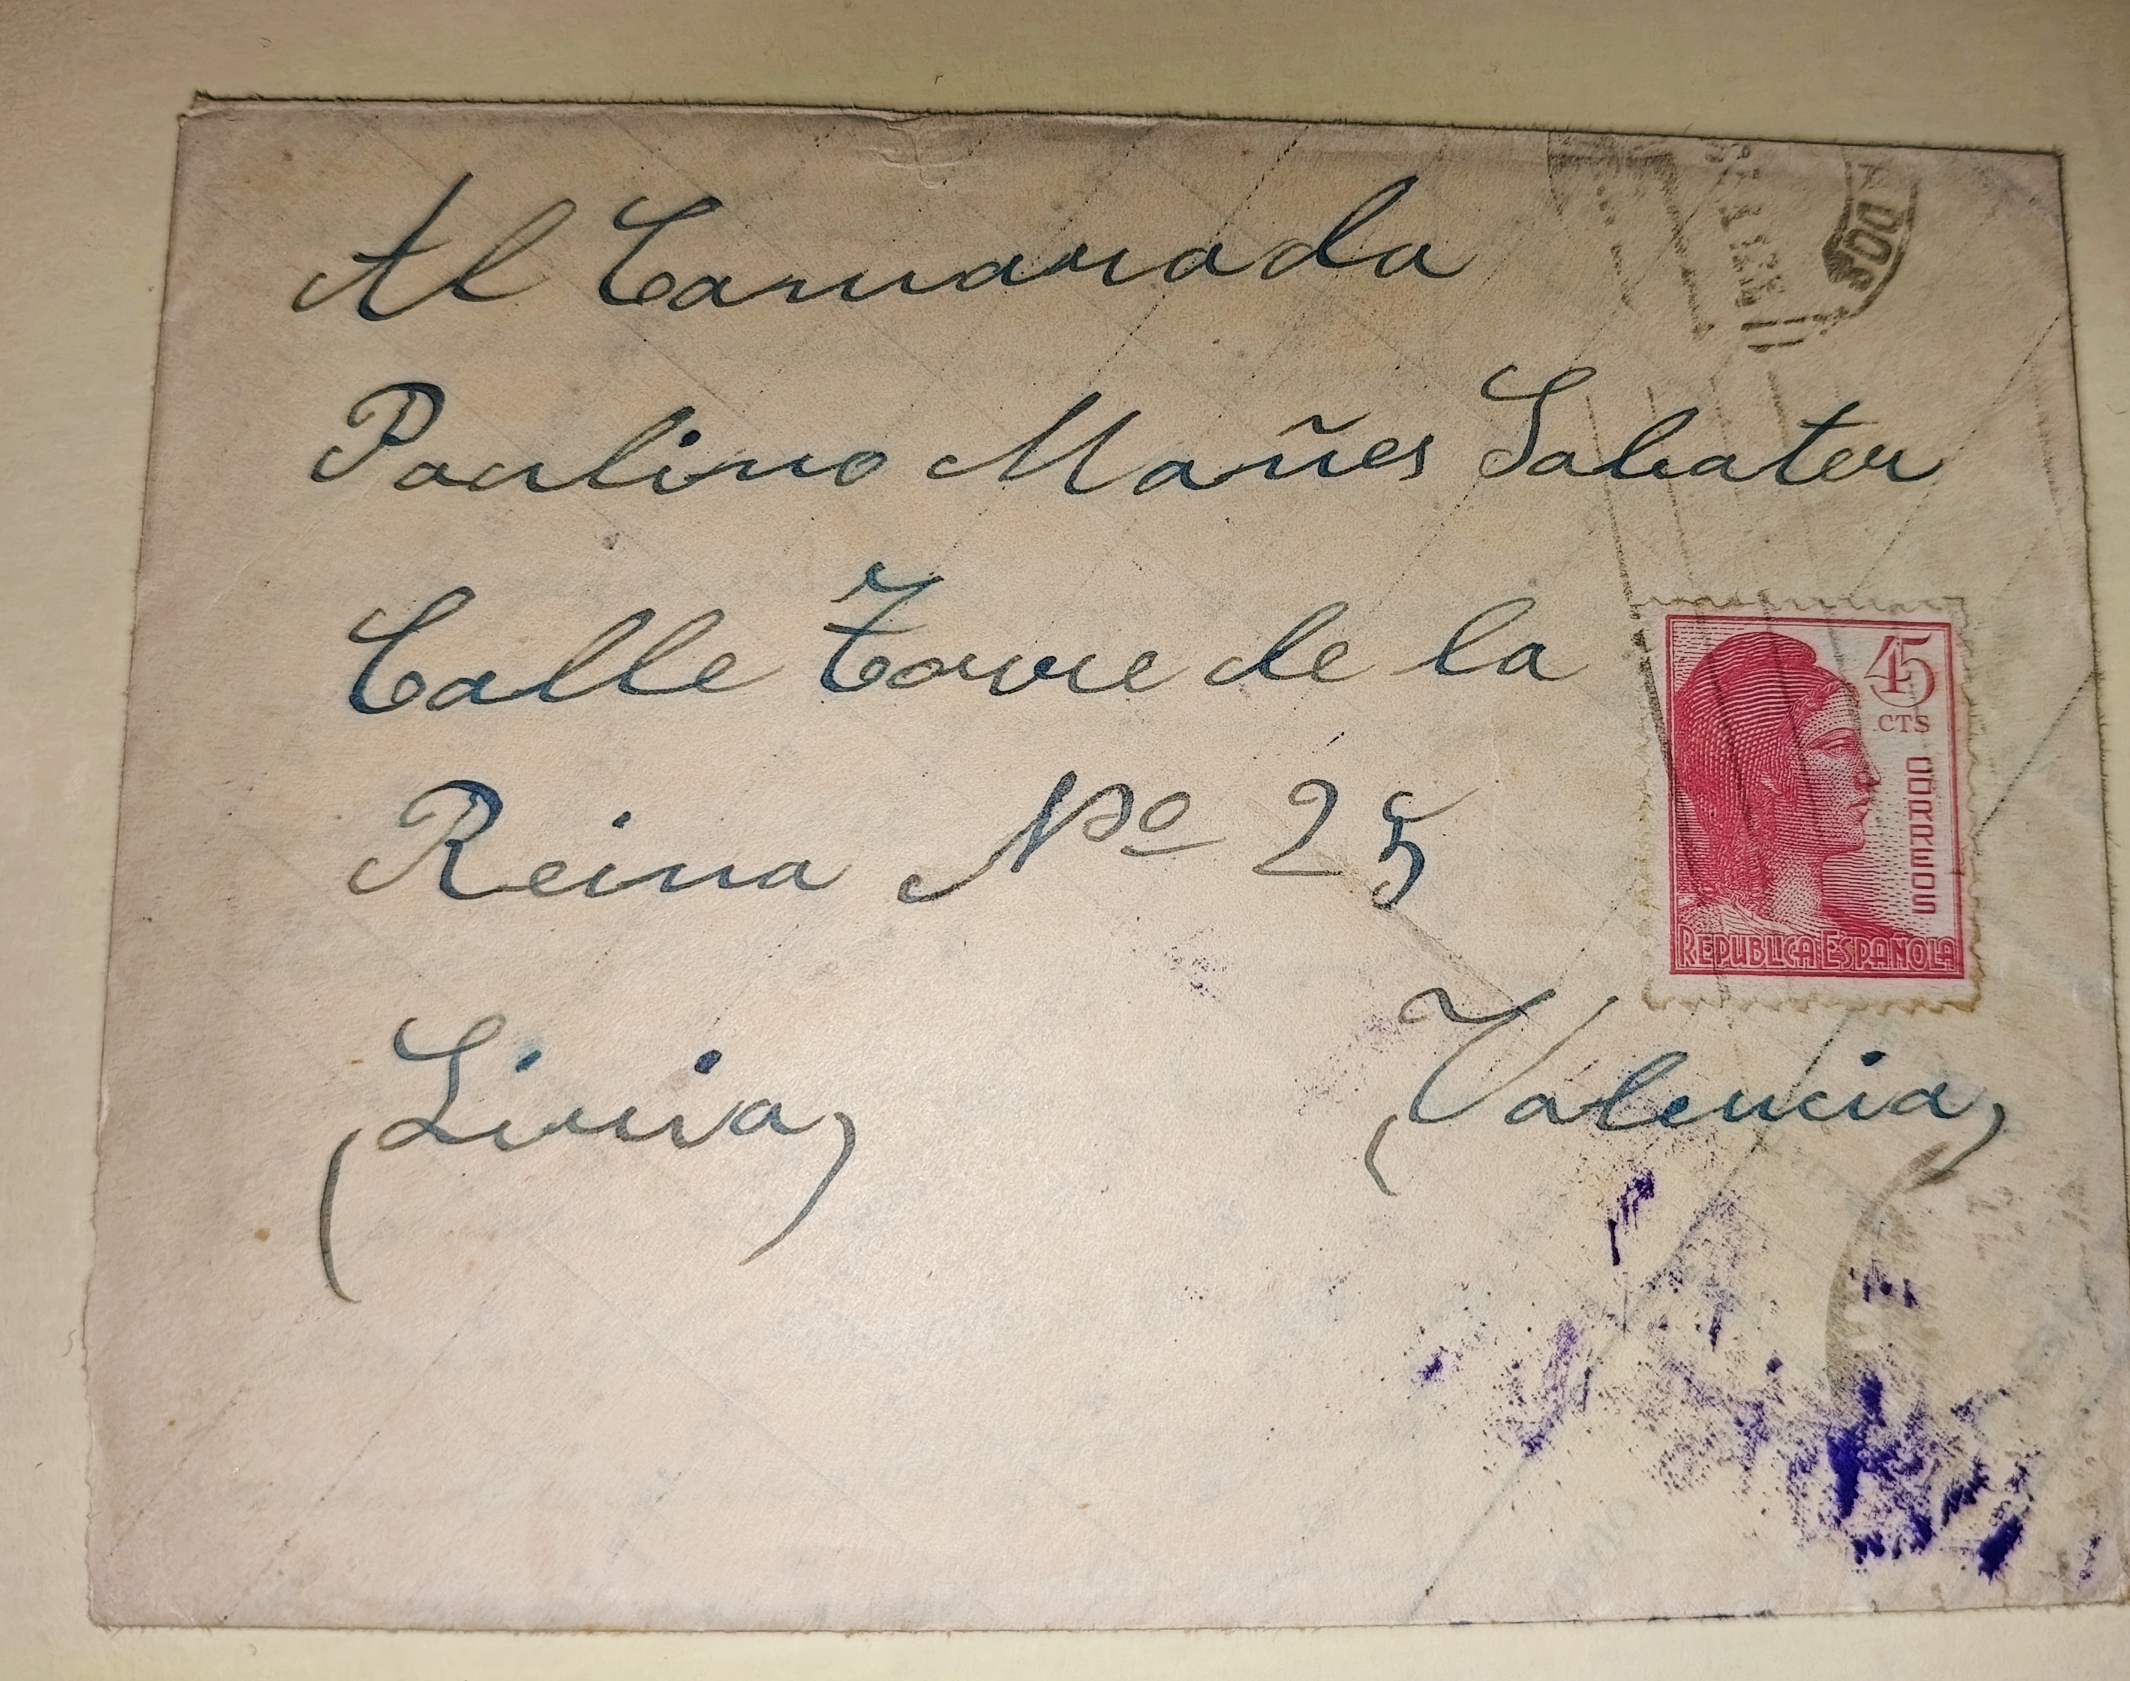 Al Camarada
Paulino Mañes Sabater
Calle Torre de la
Reina Nº 25
(Liria) (Valencia)
45
CTS
CORREOS
REPUBLICA ESPAÑOLA